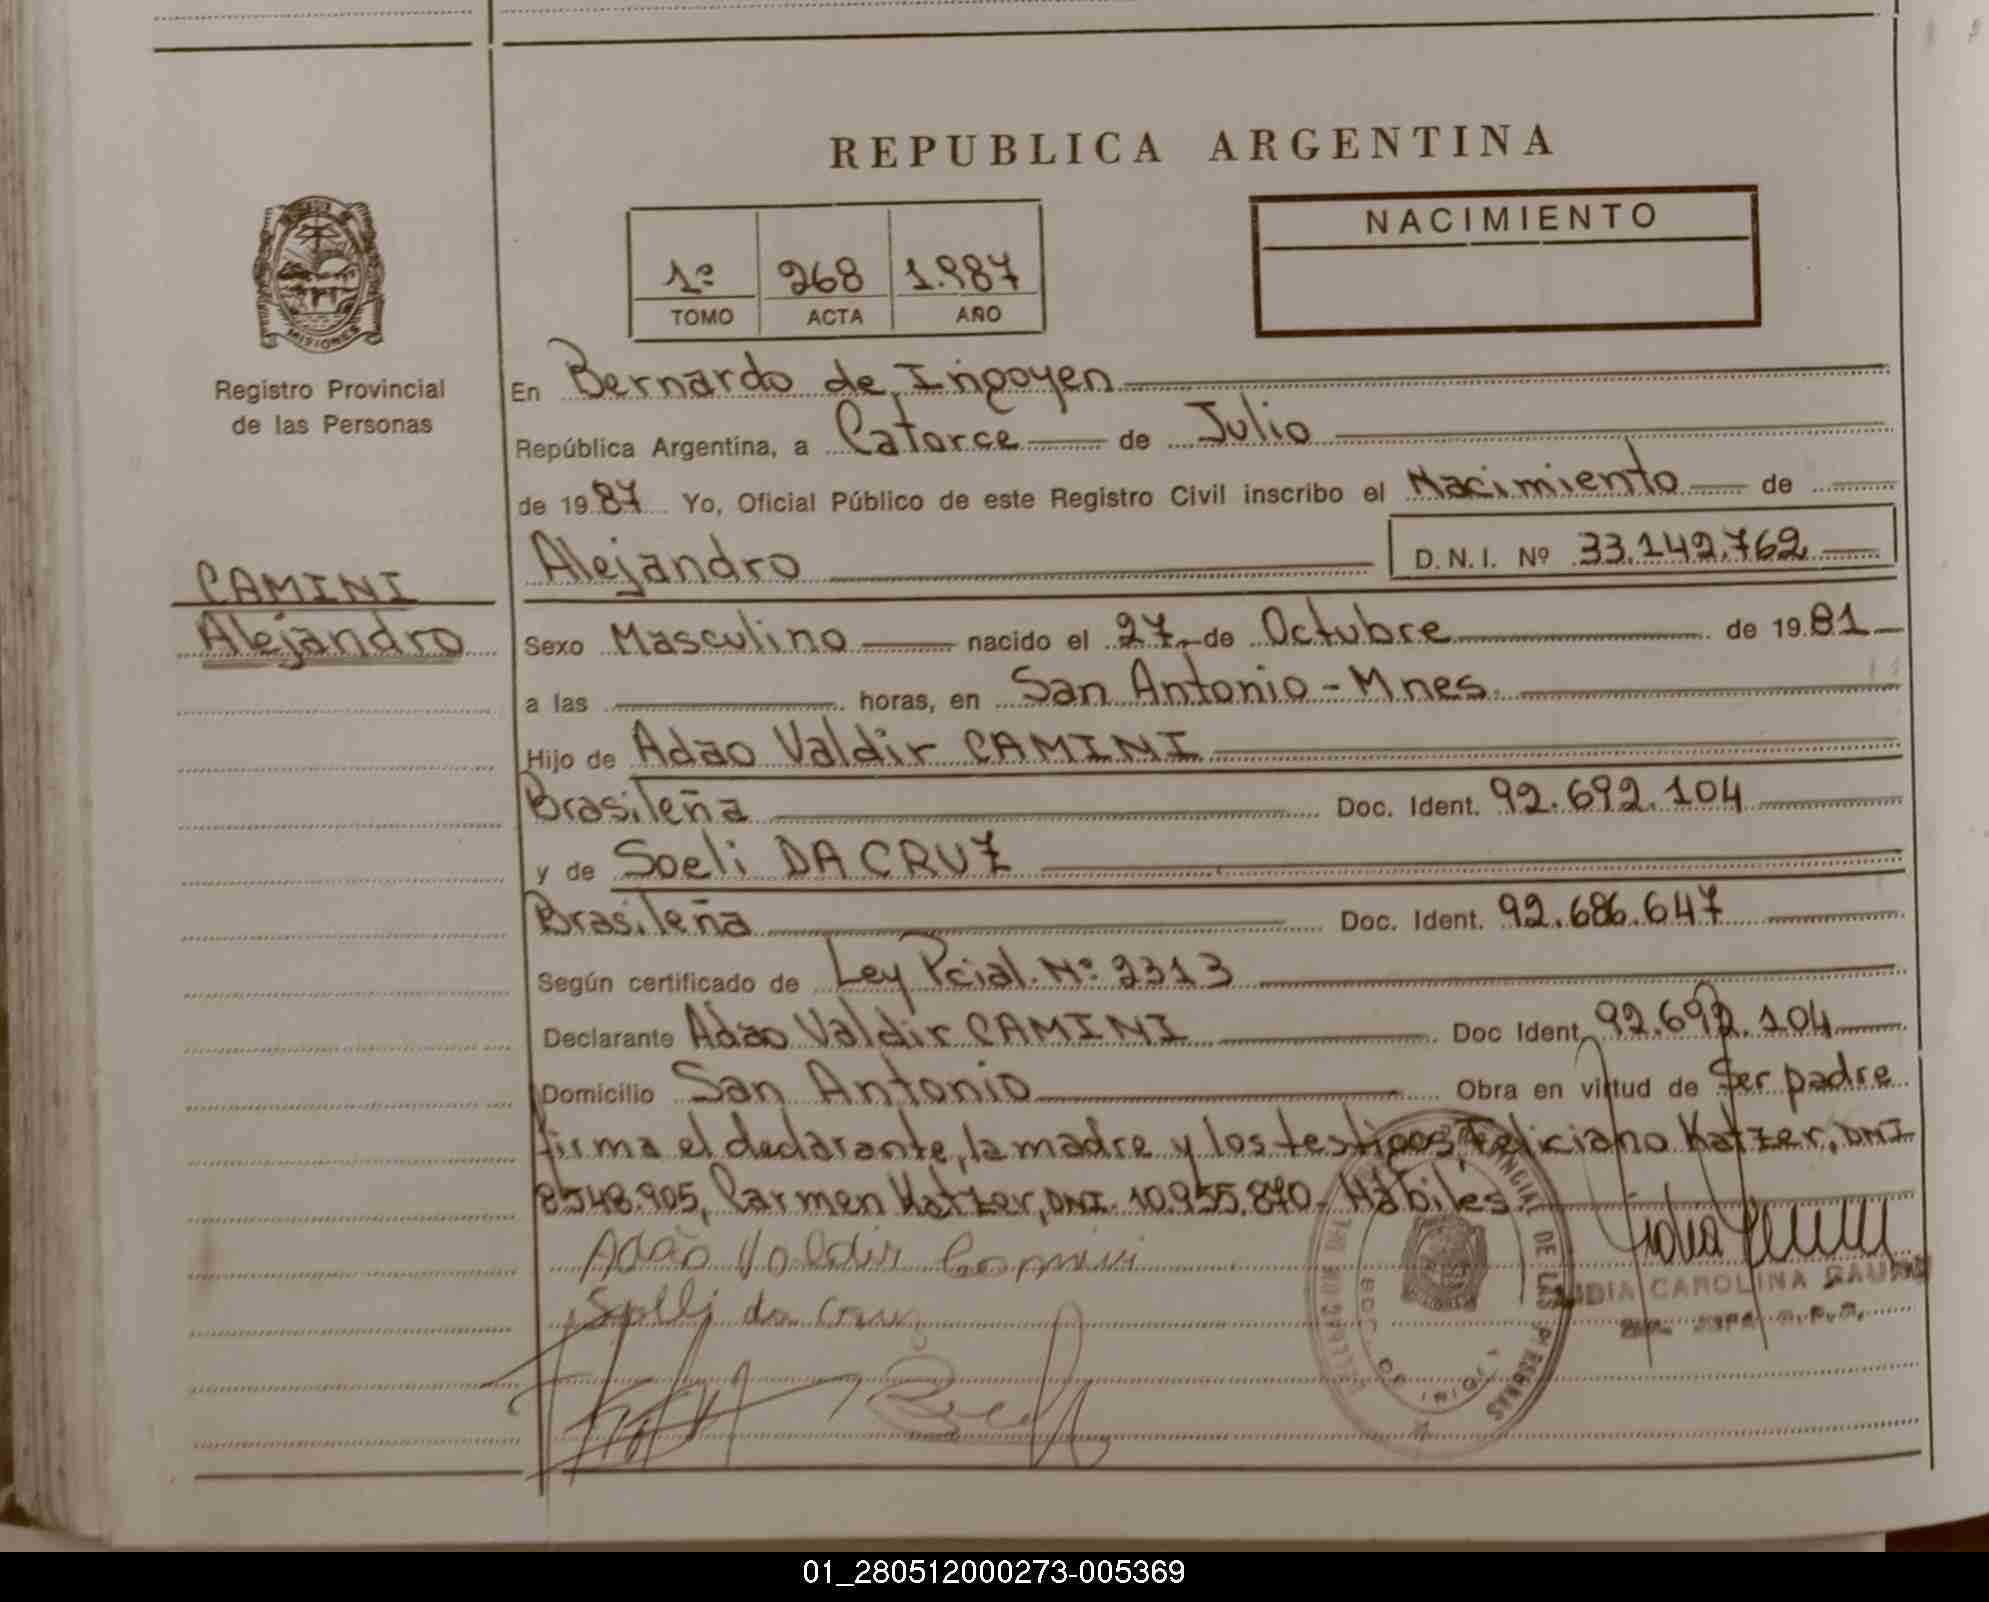 REPUBLICA ARGENTINA
1º 268 1.987
TOMO ACTA AÑO
NACIMIENTO
MISIONES
Registro Provincial
de las Personas
CAMINI
Alejandro
En Bernardo de Irigoyen
República Argentina, a Catorce de Julio
de 1987 Yo, Oficial Público de este Registro Civil inscribo el Nacimiento de
Alejandro D.N.I. Nº 33.142.762
Sexo Masculino nacido el 27 de Octubre de 1981
a las horas, en San Antonio - Mnes.
Hijo de Adão Valdir CAMINI
Brasileña Doc. Ident. 92.692.104
y de Soeli DA CRUZ
Brasileña Doc. Ident. 92.686.647
Según certificado de Ley Pcial. Nº 2313
Declarante Adão Valdir CAMINI Doc Ident. 92.692.104
Domicilio San Antonio Obra en virtud de Ser padre
firma el declarante, la madre y los testigos, Feliciano Katzer, DNI
8548.905, Carmen Katzer, DNI. 10.955.870 - Hábiles
Adão Valdir Camini
da Cruz
CAROLINA
DE LAS PERSONAS
01_280512000273-005369